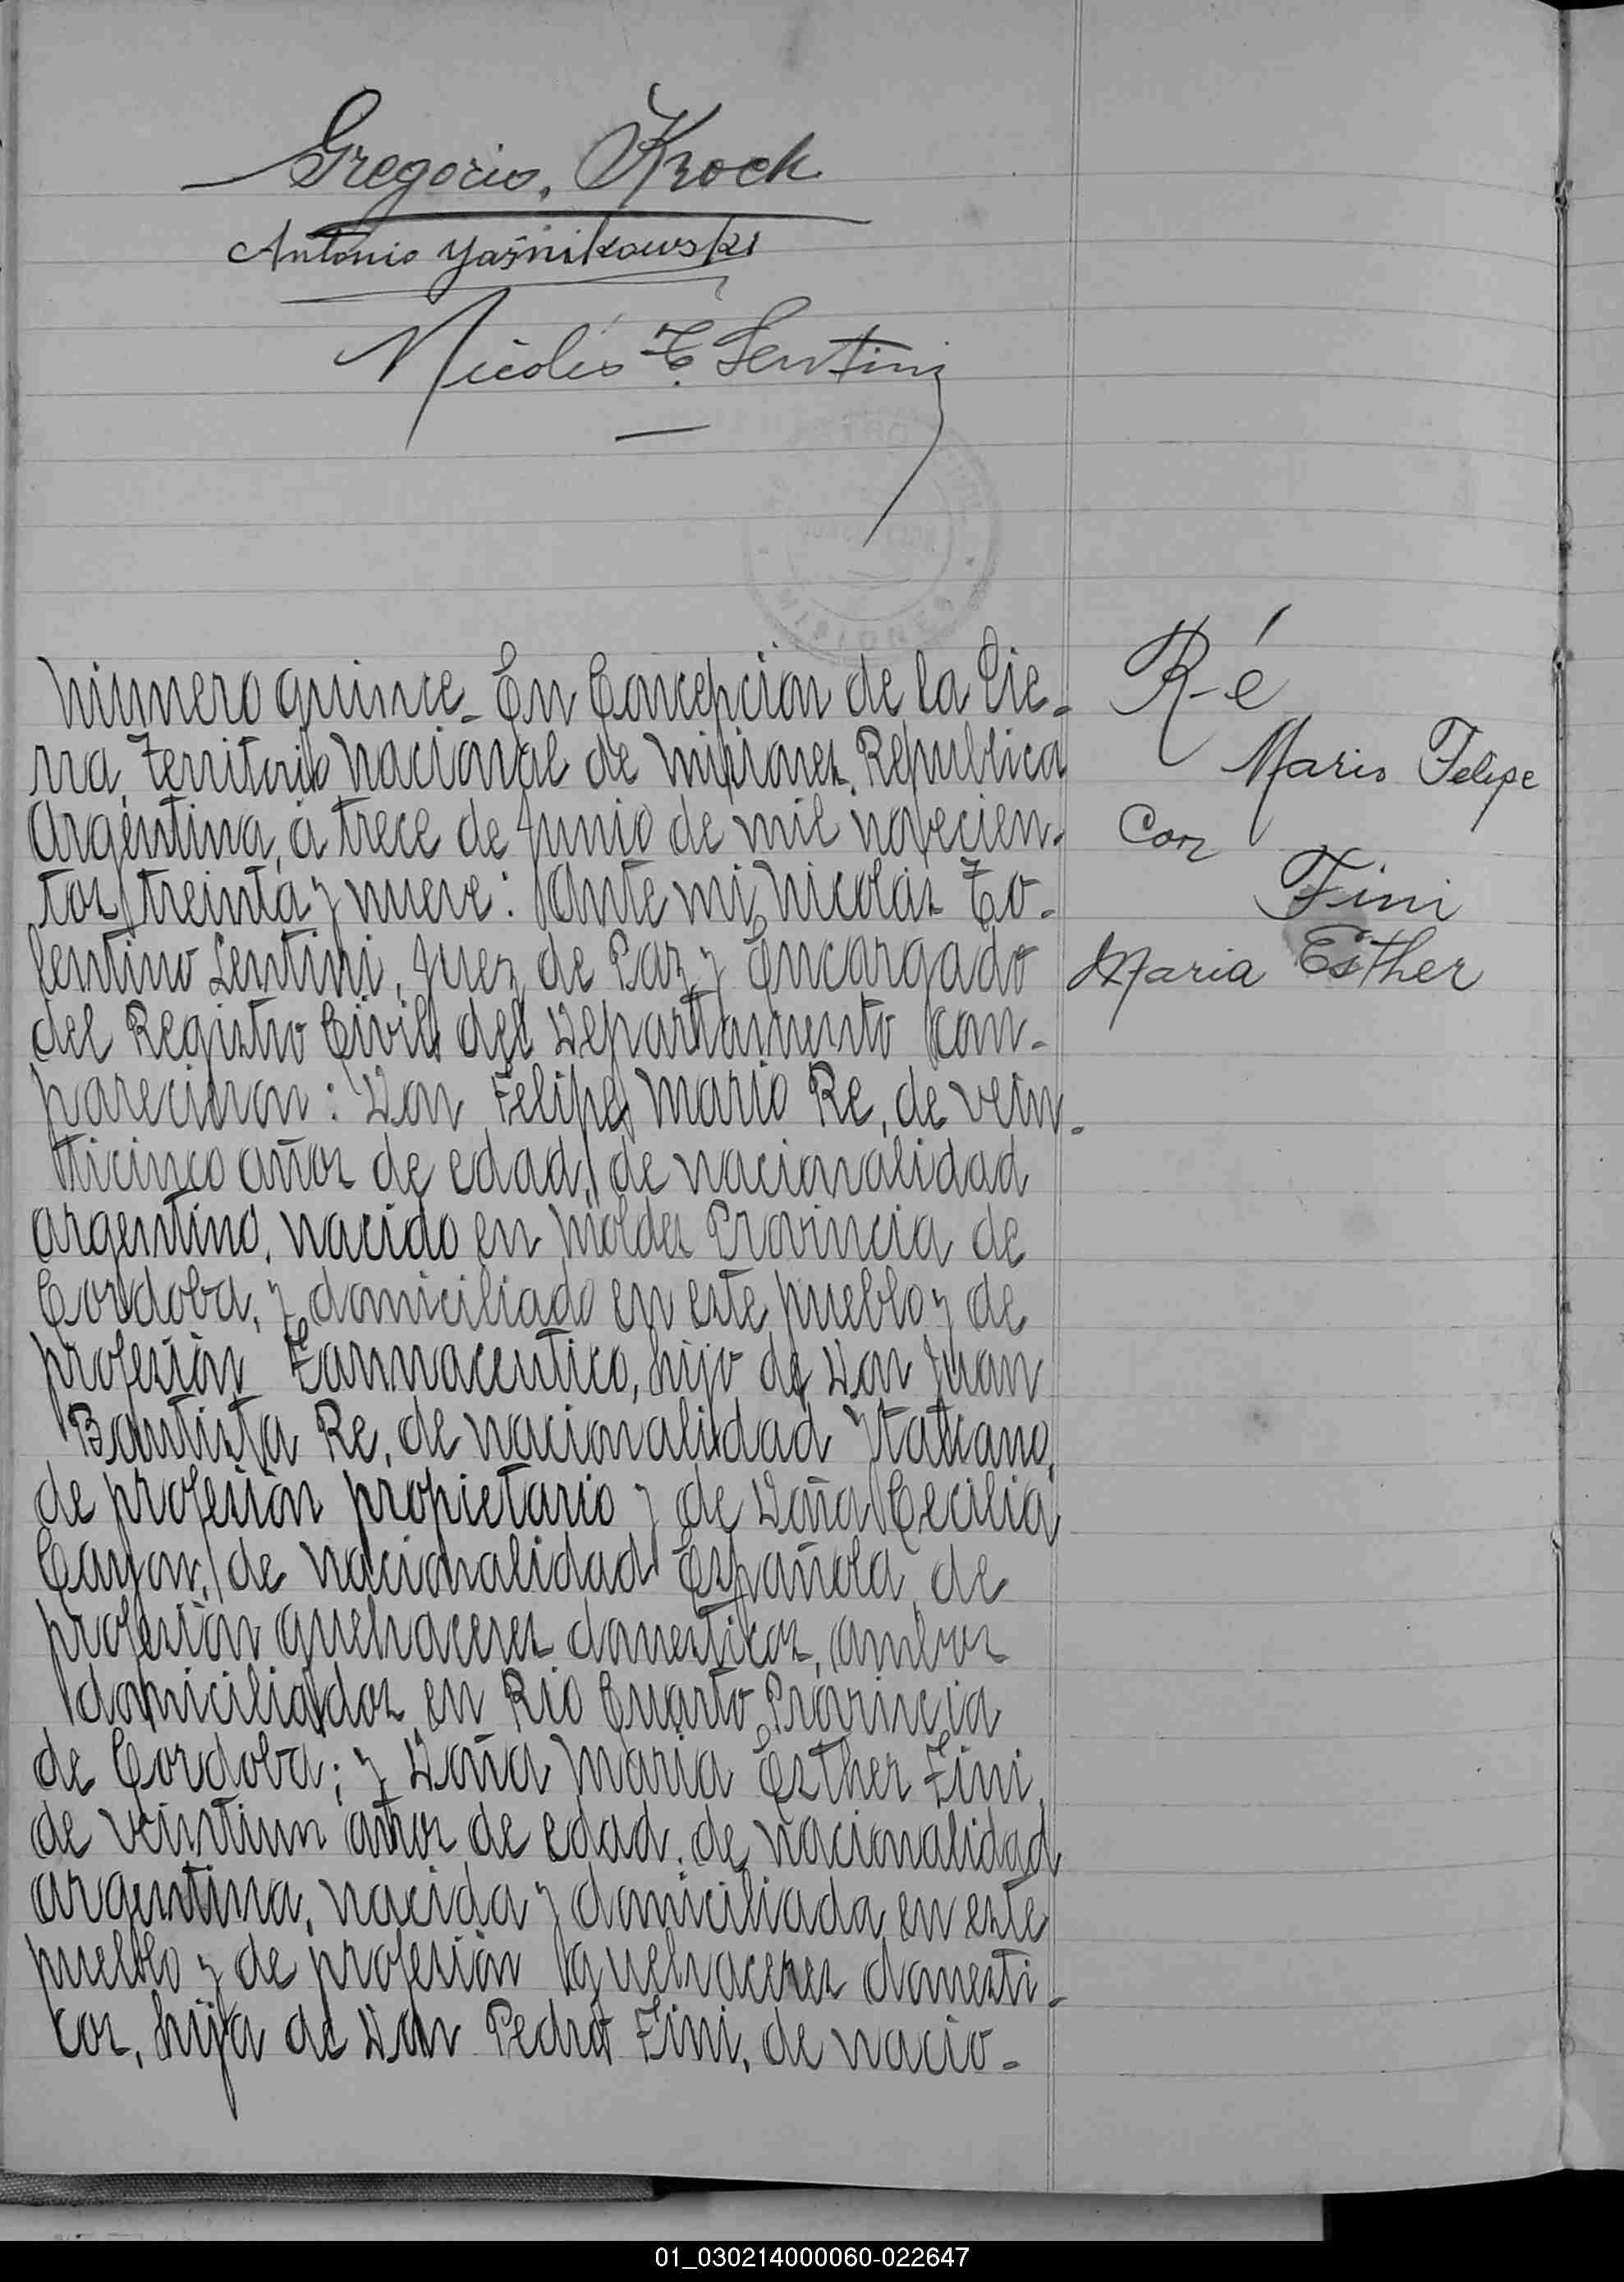 Gregorio, Krock
Antonio Yasnikowski
Nicolás T. Lentini
Número quince_ En Concepción de la Sie-
rra, Territorio Nacional de Misiones, Republica
Argentina, á trece de Junio de mil novecien-
tos treinta y nueve: Ante mi, Nicolás To-
lentino Lentini, Juez de Paz y Encargado
del Registro Civil del Departamento com-
parecieron: Don Felipe Mario Re, de vein-
ticinco años de edad, de nacionalidad
argentino, nacido en Moldes Provincia de
Cordoba, y domiciliado en este pueblo y de
profesión Farmaceutico, hijo de Don Juan
Bautista Re, de nacionalidad Italiano,
de profesión propietario y de Doña Cecilia
de nacionalidad Española, de
profesión quehaceres domesticos, ambos
domiciliados en Rio Cuarto, Provincia
de Cordoba; y Doña Maria Esther Fini,
de veintiun años de edad, de nacionalidad
argentina, nacida y domiciliada en este
pueblo y de profesión quehaceres domesti-
cos, hija de Don Pedro Fini, de nacio-
R-é
Mario Felipe
Con
Fini
Maria Esther
01_030214000060-022647